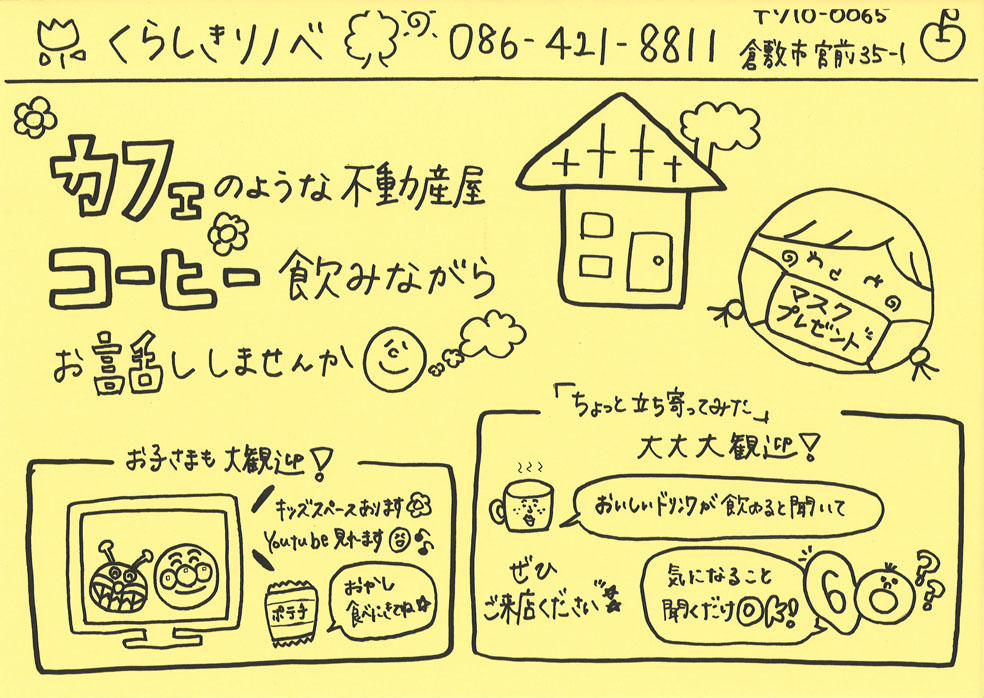 くらしきリノベ 086-421-8811 〒710-0065
倉敷市宮前35-1
カフェのような不動産屋
コーヒー飲みながら
お話ししませんか
マスク
プレゼント
お子さまも大観迎!
キッズスペースあります
Youtube見れます
ポテチ
おかし
食べにきてね
「ちょっと立ち寄ってみた」
大大大観迎!
おいしいドリンクが飲めると聞いて
ぜひ
ご来店ください
気になること
聞くだけOK!
60
??